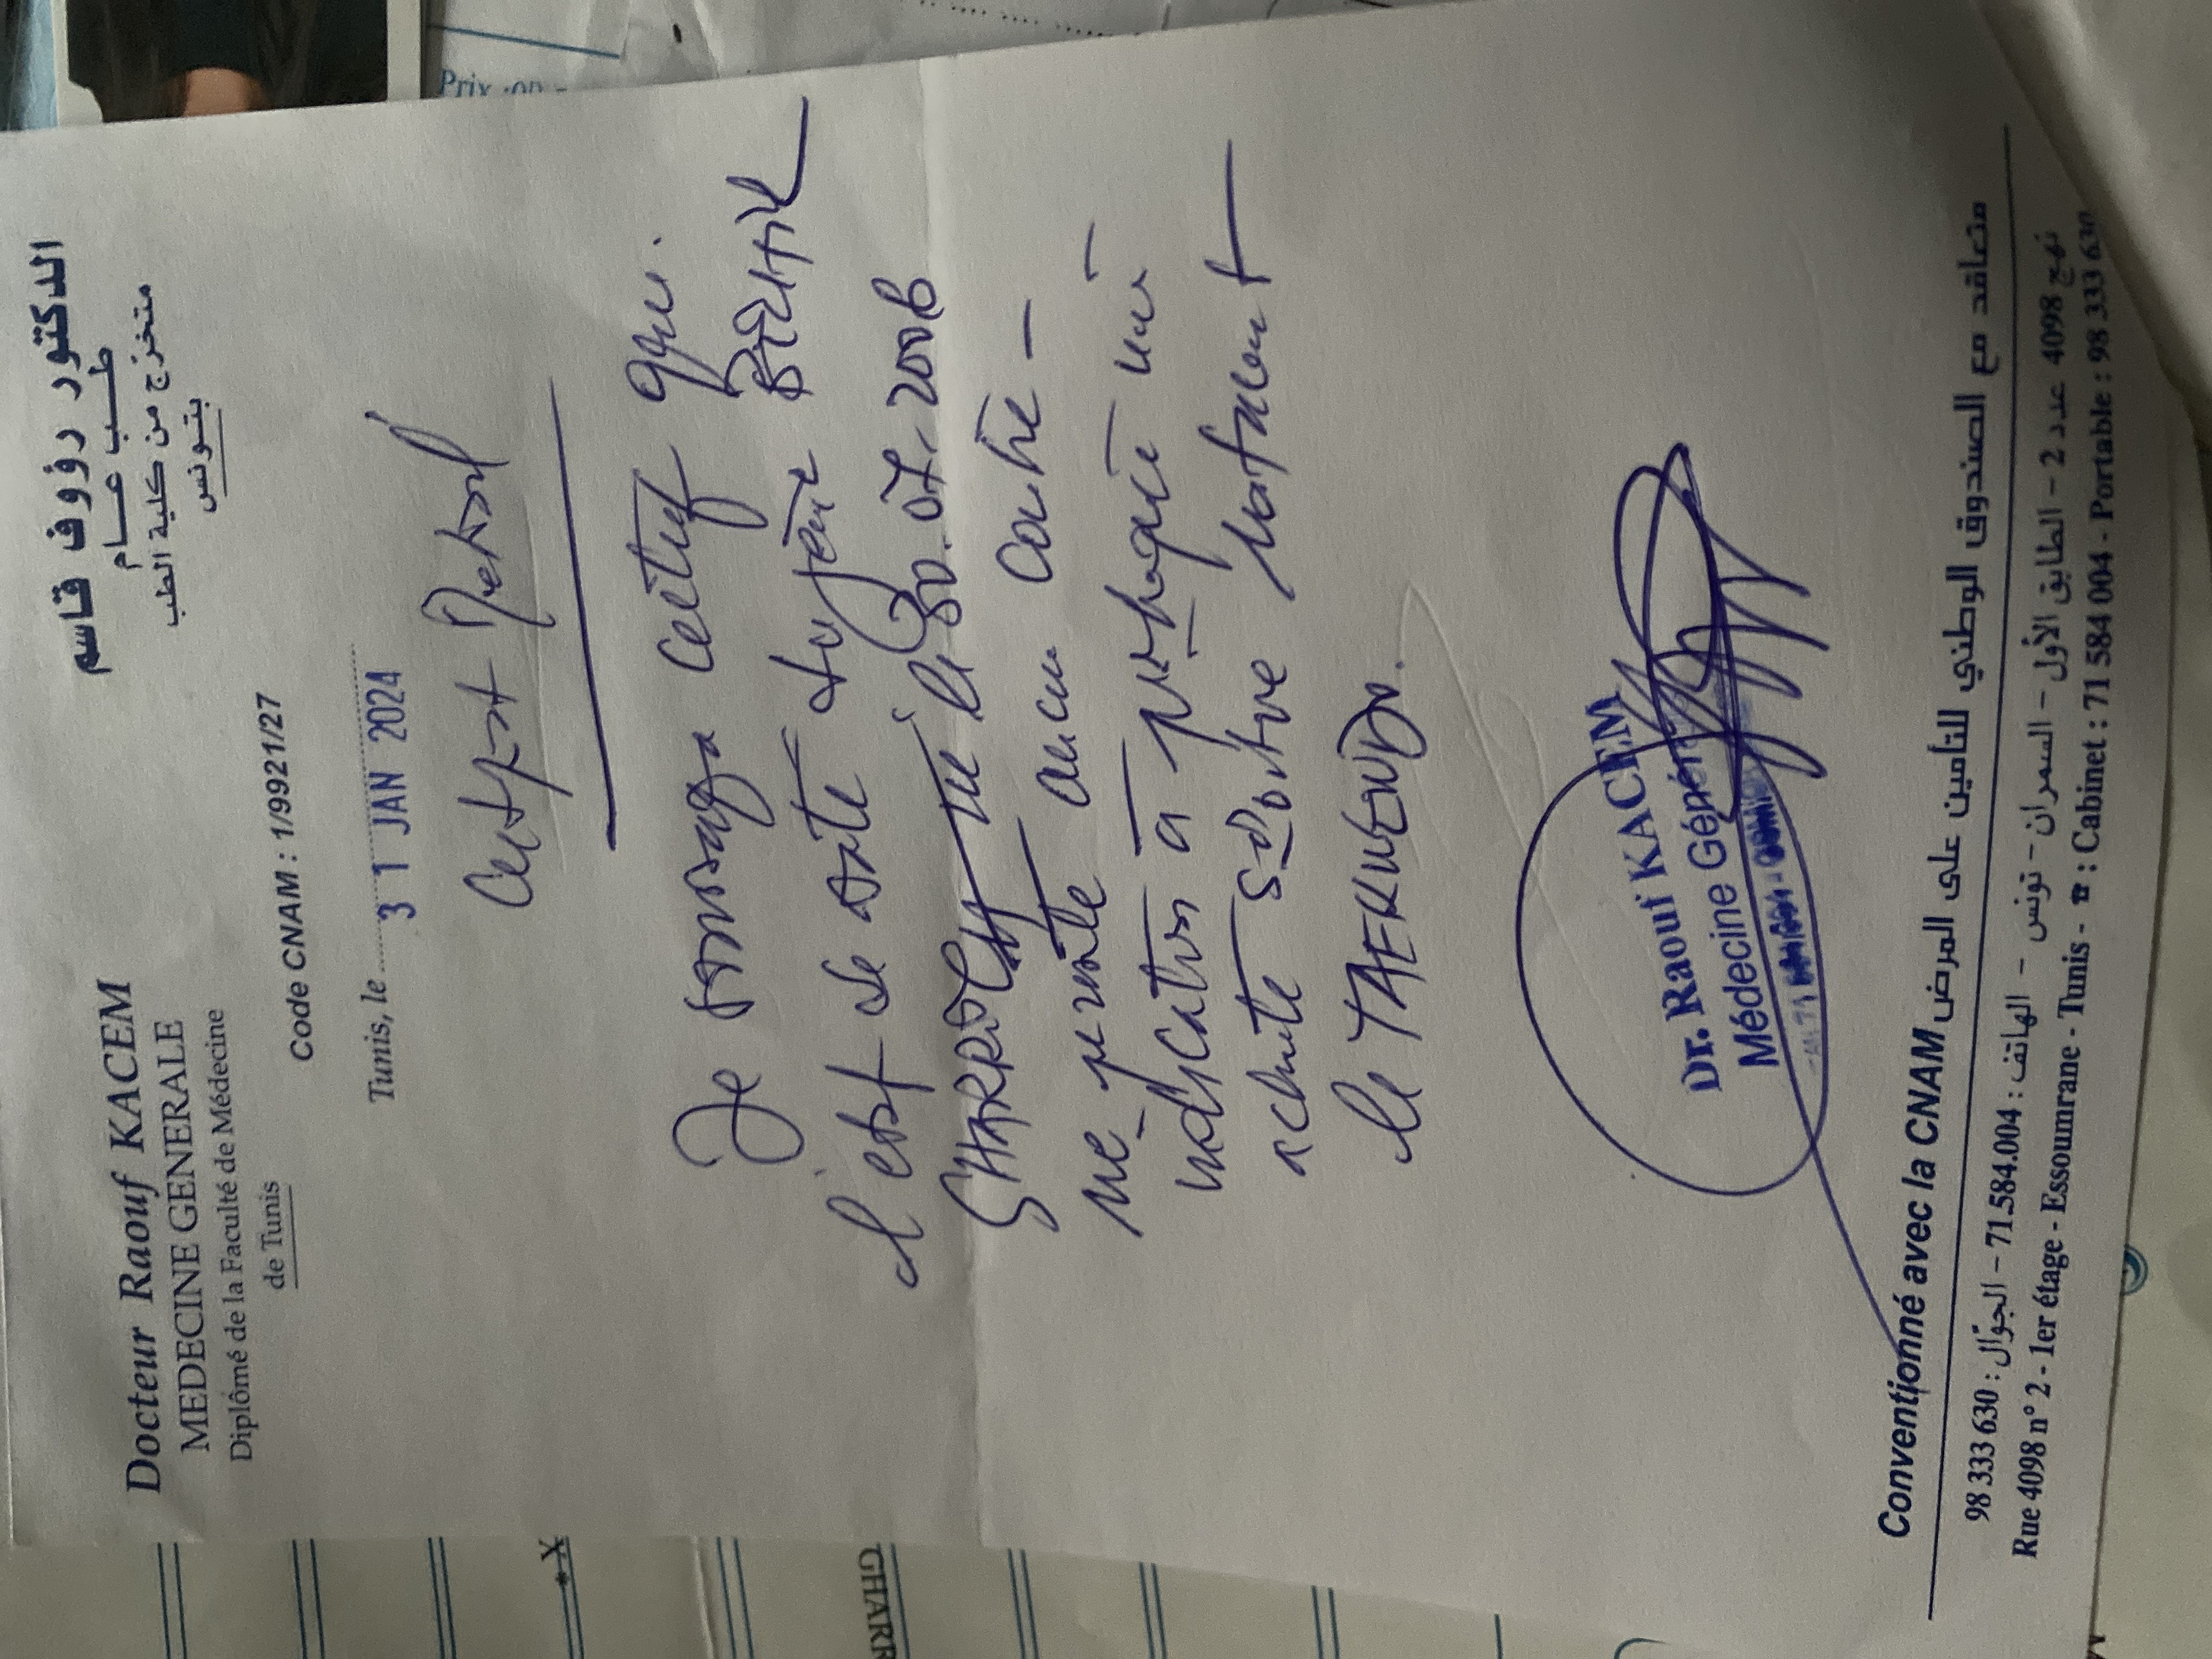 Docteur Raouf KACEM
MEDECINE GENERALE
Diplômé de la Faculté de Médecine
de Tunis
الدكتور رؤوف قاسم
طـــب عـــام
متخرّج من كلية الطب
بتـونس
Code CNAM : 1/9921/27
Tunis, le 31 JAN 2024
Certificat Médical
Je soussigné certifie que
l'état de santé du jeune
GHARROLY né le 30.07.2008
ne présente aucune contre-
indication à pratiquer une
activité sportive notamment
le TAEKWENDO.
Dr. Raouf KACEM
Médecine Générale
Conventionné avec la CNAM متعاقد مع الصندوق الوطني للتأمين على المرض
نهج 4098 عدد 2 - الطابق الأول - السمران - تونس - الهاتف : 71.584.004 - الجوّال : 98 333 630
Rue 4098 n° 2 - 1er étage - Essoumrane - Tunis - ☎ : Cabinet : 71 584 004 - Portable : 98 333 630
Prix
X*
GHARR